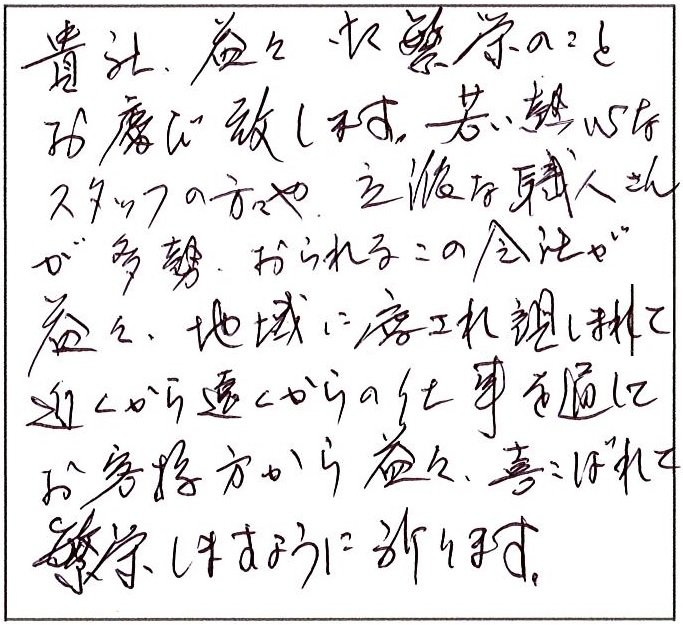 貴社、益々お繁栄のこと
お慶び致します。若い熱心な
スタッフの方々や、立派な職人さん
が多勢、おられるこの会社が
益々、地域に愛され親しまれて
近くから遠くからの仕事を通して
お客様方から益々、喜こばれて
繁栄しますように祈ります。